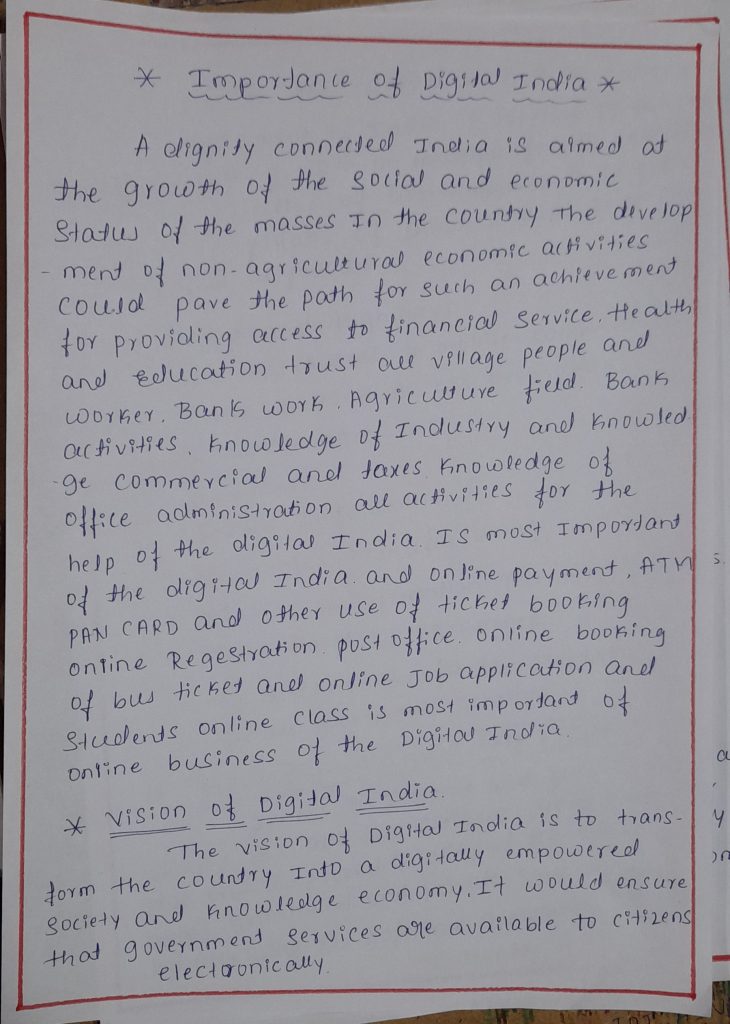 * Importance of Digital India *
A dignity connected India is aimed at
the growth of the social and economic
Status of the masses In the country The develop
- ment of non-agricultural economic activities
could pave the path for such an achievement
for providing access to financial service. Health
and education trust all village people and
worker. Bank work. Agriculture field. Bank
activities. knowledge of Industry and knowled
-ge commercial and taxes knowledge of
office administration all activities for the
help of the digital India. Is most Important
of the digital India. and online payment, ATM
PAN CARD and other use of ticket booking
online Regestration. post office. online booking
of bus ticket and online Job application and
Students online class is most important of
online business of the Digital India.
* Vision of Digital India.
The vision of Digital India is to trans-
form the country Into a digitally empowered
society and knowledge economy. It would ensure
that government services are available to citizens
electoronically.